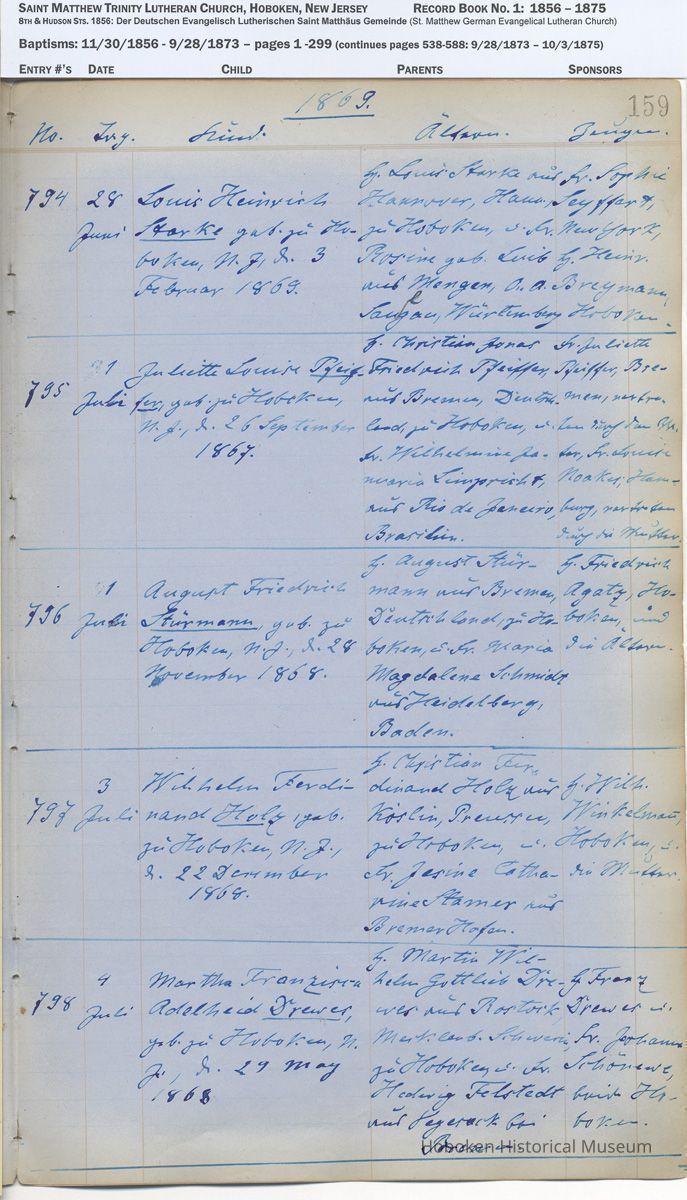 SAINT MATTHEW TRINITY LUTHERAN CHURCH, HOBOKEN, NEW JERSEY RECORD BOOK NO. 1: 1856 – 1875
8TH & HUDSON STS. 1856: Der Deutschen Evangelisch Lutherischen Saint Matthäus Gemeinde (St. Matthew German Evangelical Lutheran Church)
Baptisms: 11/30/1856 - 9/28/1873 – pages 1 -299 (continues pages 538-588: 9/28/1873 – 10/3/1875)
ENTRY #'S DATE CHILD PARENTS SPONSORS
1869. 159
No. Tag. Kind. Ältern. Zeugen.
794
28
Juni
Louis Heinrich
Starke geb. zu Ho-
boken, N. J., d. 3
Februar 1869.
H. Louis Starke aus
Hannover, Hann.,
zu Hoboken, u. Fr.
Rosine geb. Leib
aus Mengen, O. A.
Saulgau, Würtemberg
Fr. Sophie
Seyffart,
New York,
H. Heinr.
Breymann,
Hoboken
795
1
Juli
Juliette Louise Pfeif-
fer, geb. zu Hoboken,
N. J., d. 26 September
1867.
H. Christian Jonas
Friedrich Pfeiffer,
aus Bremen, Deutsch-
land, zu Hoboken, u.
Fr. Wilhelmine Ja-
nuaria Limpricht,
aus Rio de Janeiro,
Brasilien.
Fr. Juliette
Pfeiffer, Bre-
men, vertre-
ten durch den Va-
ter, Fr. Louise
Noakes, Ham-
burg, vertreten
durch die Mutter.
796
1
Juli
August Friedrich
Stürmann, geb. zu
Hoboken, N. J., d. 28
November 1868.
H. August Stür-
mann aus Bremen,
Deutschland, zu Ho-
boken, u. Fr. Maria
Magdalene Schmidt
aus Heidelberg,
Baden.
H. Friedrich
Agatz, Ho-
boken, und
die Ältern.
797
3
Juli
Wilhelm Ferdi-
nand Holz, geb.
zu Hoboken, N. J.,
d. 22 December
1868.
H. Christian Fer-
dinand Holz aus
Köslin, Preussen,
zu Hoboken, u.
Fr. Jesine Catha-
rine Stamer aus
Bremer Hafen.
H. Wilh.
Winkelmann,
Hoboken, u.
die Mutter.
798
4
Juli
Martha Franzisca
Adelheid Drewes,
geb. zu Hoboken, N.
J., d. 29 May
1868
H. Martin Wil-
helm Gottlieb Dre-
wes aus Rostock,
Mecklenb. Schwerin,
zu Hoboken, u. Fr.
Hedwig Felstedt
aus Vegesack bei
Bremen
H. Franz
Drewes u.
Fr. Johanne
Schönewe,
beide Ho-
boken.
Hoboken Historical Museum